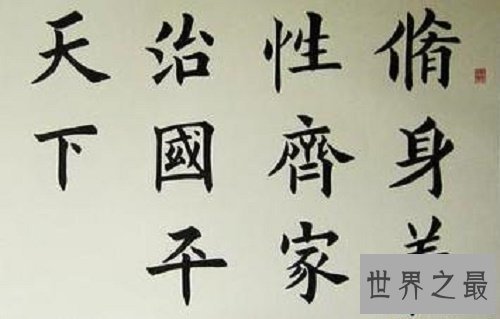 脩身
性齊家
治國平
天下
世界之最